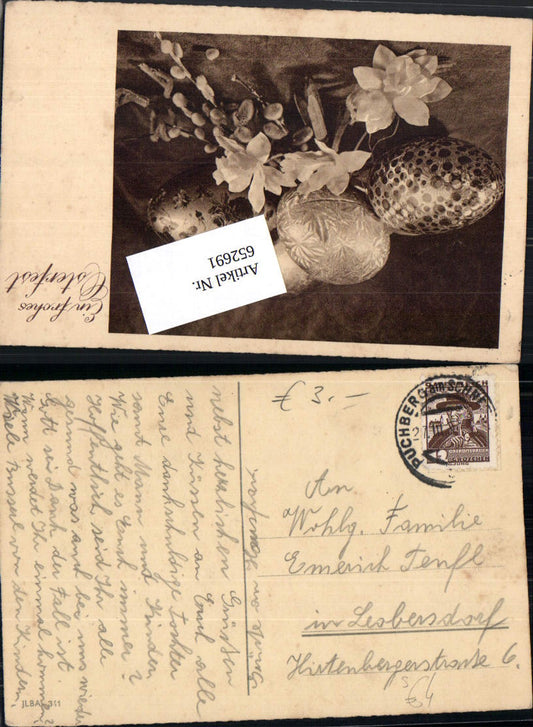 Ein frohes
Osterfest
Artikel Nr.
652691
€ 3.-
PUCHBERG AM SCHNE
An
Wohlg. Familie
Emerich
in Leobersdorf
Hirtenbergerstrasse 6.
Wie geht es Euch immer?
Hoffentlich seid Ihr alle
gesund was auch bei uns wieder
Gott sei Dank der Fall ist.
Wann werdet Ihr einmal kommen?
Viele Busserl von den Kindern,
samt Mann und Kinder
Eure dankschuldige Tochter
und Küssen an Euch alle
nebst herzlichen Grüßen